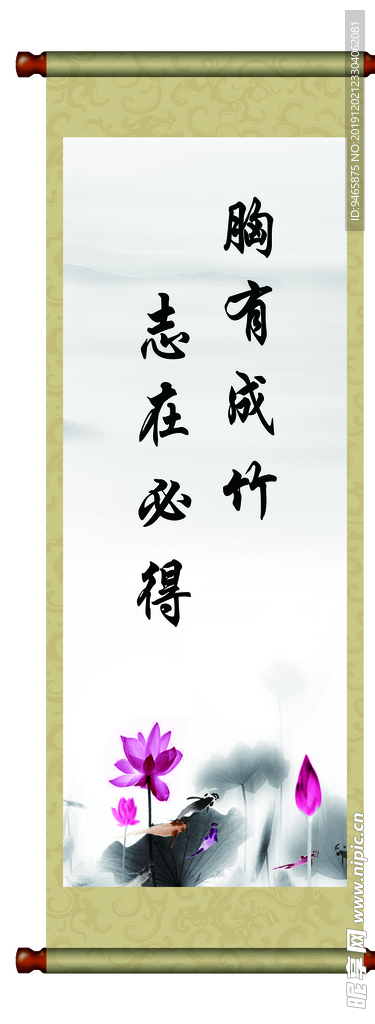 胸有成竹
志在必得
ID:9465875 NO:20191202123304062081
昵享网 www.nipic.cn